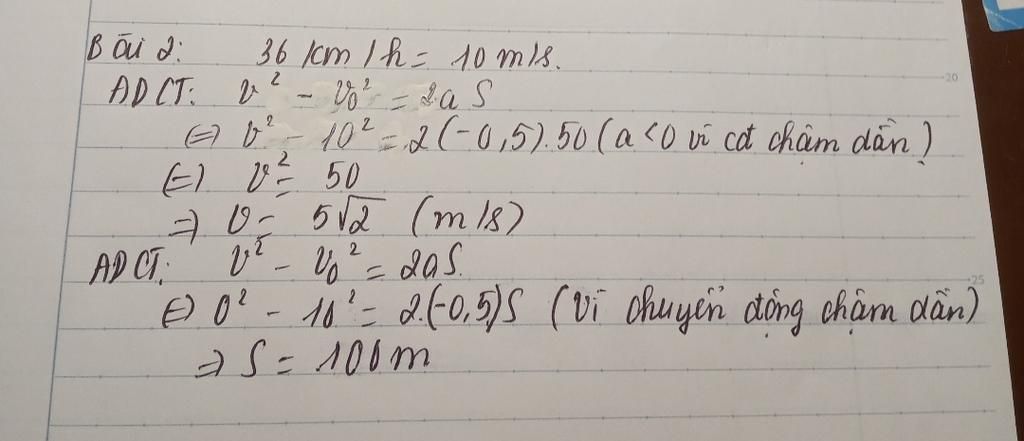 Bài 2: 36 km/h = 10 m/s.
ADCT: v² - v₀² = 2aS
(=) v² - 10² = 2(-0,5).50 (a<0 vì cđ chậm dần)
(=) v² = 50
=) v = 5√2 (m/s)
ADCT: v² - v₀² = 2aS.
(=) 0² - 10² = 2.(-0,5)S (Vì chuyển động chậm dần)
=) S = 100m
20
25